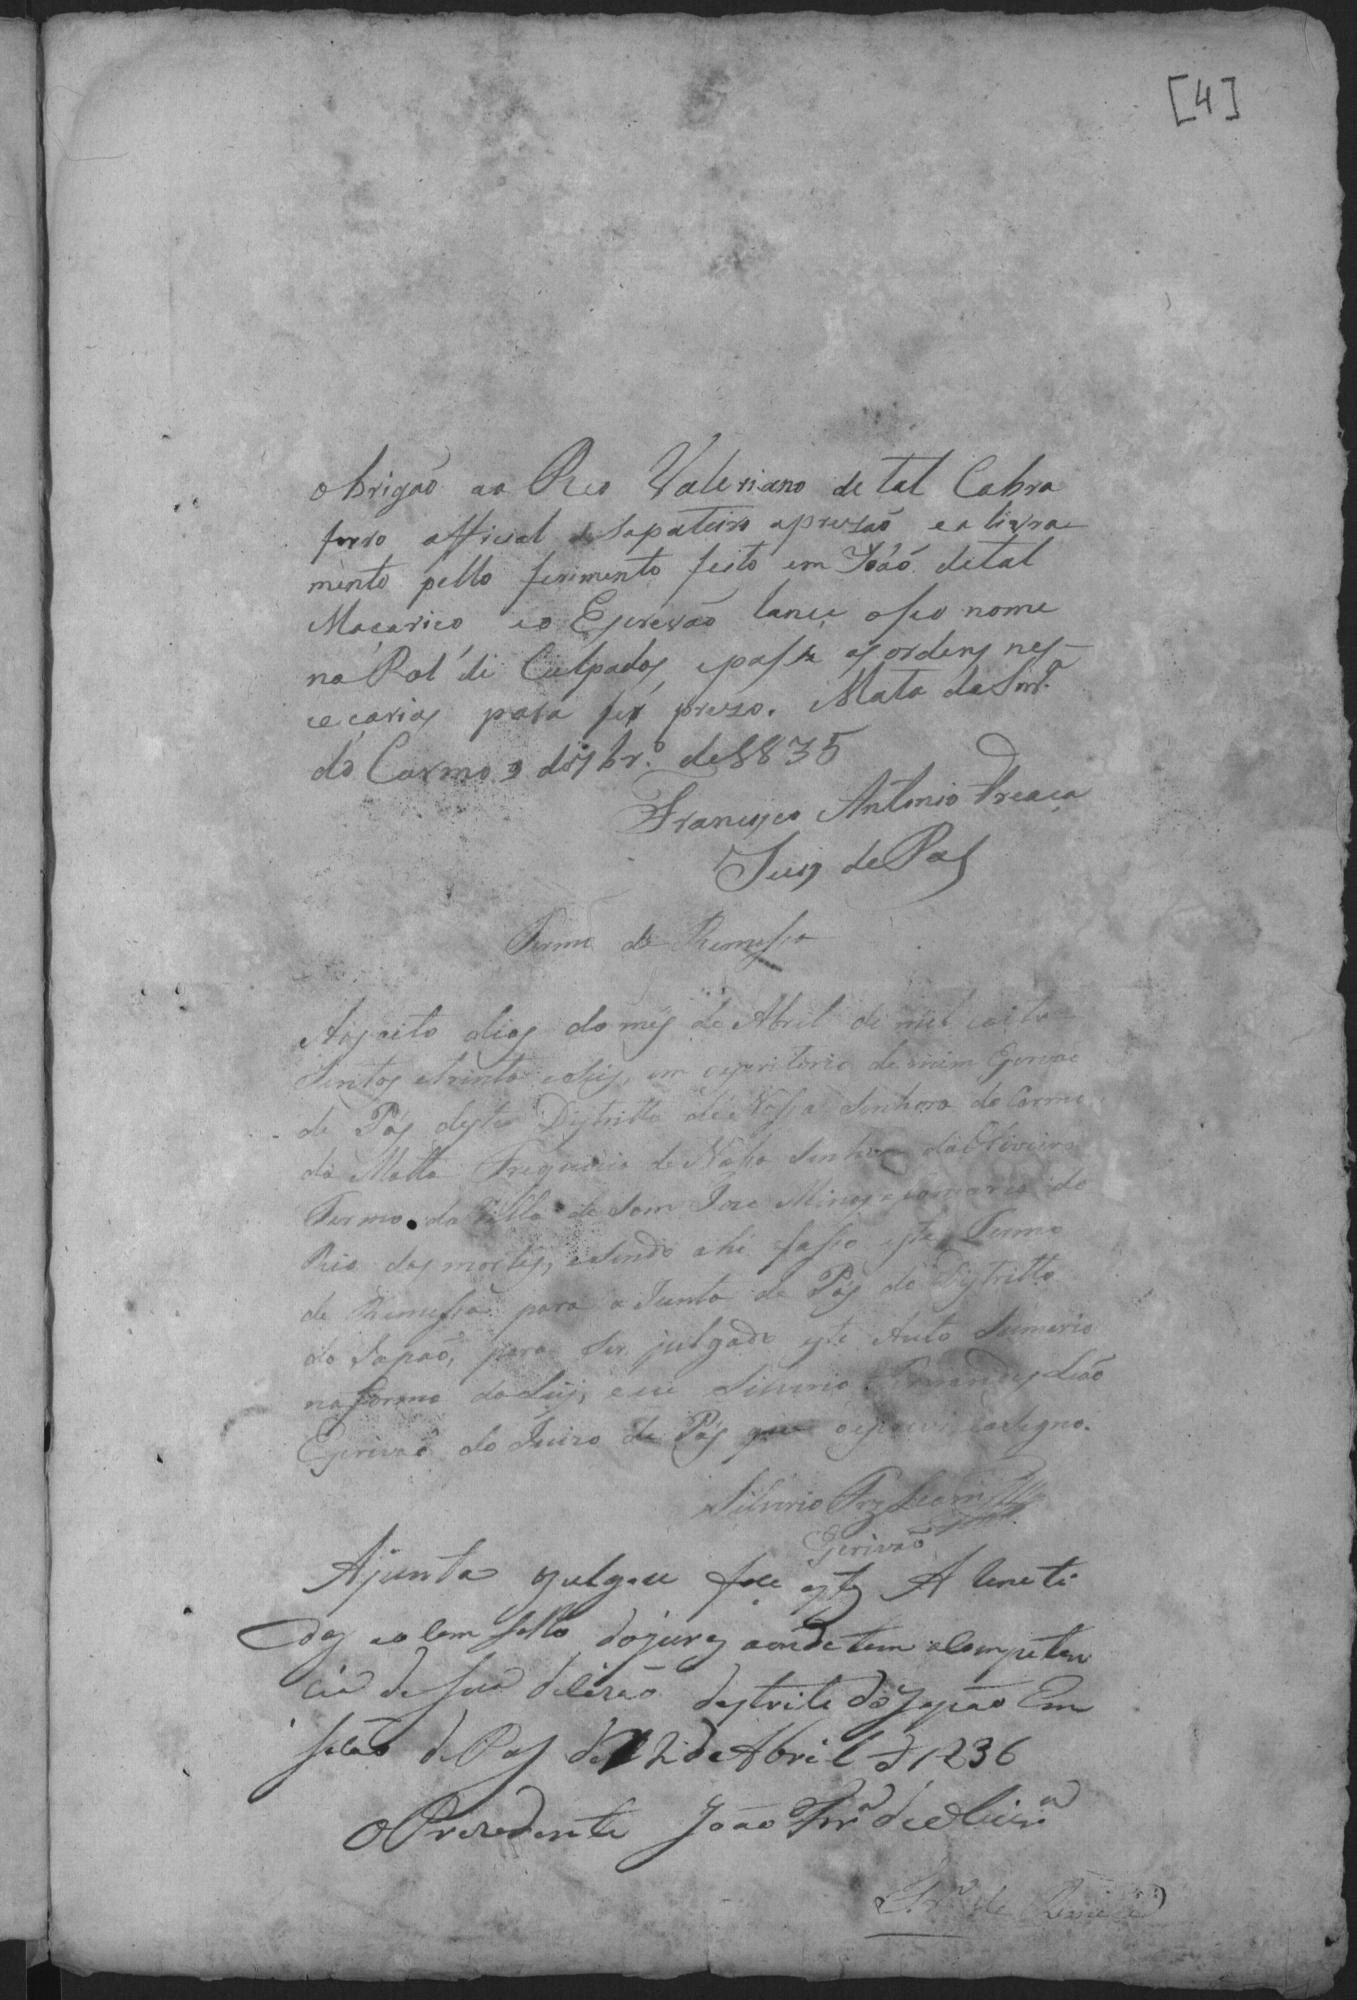 [4]
obrigão ao Reo Valeriano de tal Cabra
forro official de Sapateiro aprezão e a livra-
mento pello ferimento feito em João de tal
Maçarico e o Escrevão lance o seo nome
no Rol de Culpados, e passe as ordens nes-
cecarias para ser prezo. Mata da Snr.ª
do Carmo 9 de 7br.º de 1835
Francisco Antonio
Juis de Pas
Termo de Remessa
Aos oito dias do mes de Abril de mil oito
sentos e trinta e seis, em escritorio de mim Escrivão
de Pás deste Distritto de Nossa Senhora do Carmo
da Matta Freguizia de Nossa Senhora da Oliveira
Termo da Villa de Sam Joze Minas e Comarca do
Rio das mortes, e sendo ahi fasso este Termo
de Remessa para a Junta de Pás do Distritto
do Japaõ, para ser julgado este Auto Sumario
na forma da Leij, e eu Silverio Fernandes Leão
Escrivaõ do Juizo de Pás que o escrevi e asigno.
Silverio Frz Leam
Escrivão
A junta julgou que estes
dos jures aonde tem a Competen
cia de sua destrito do Japão Em
de Pas de 12 de Abril d 1836
O Prezedente João Frr.ª de Olivr.ª
de